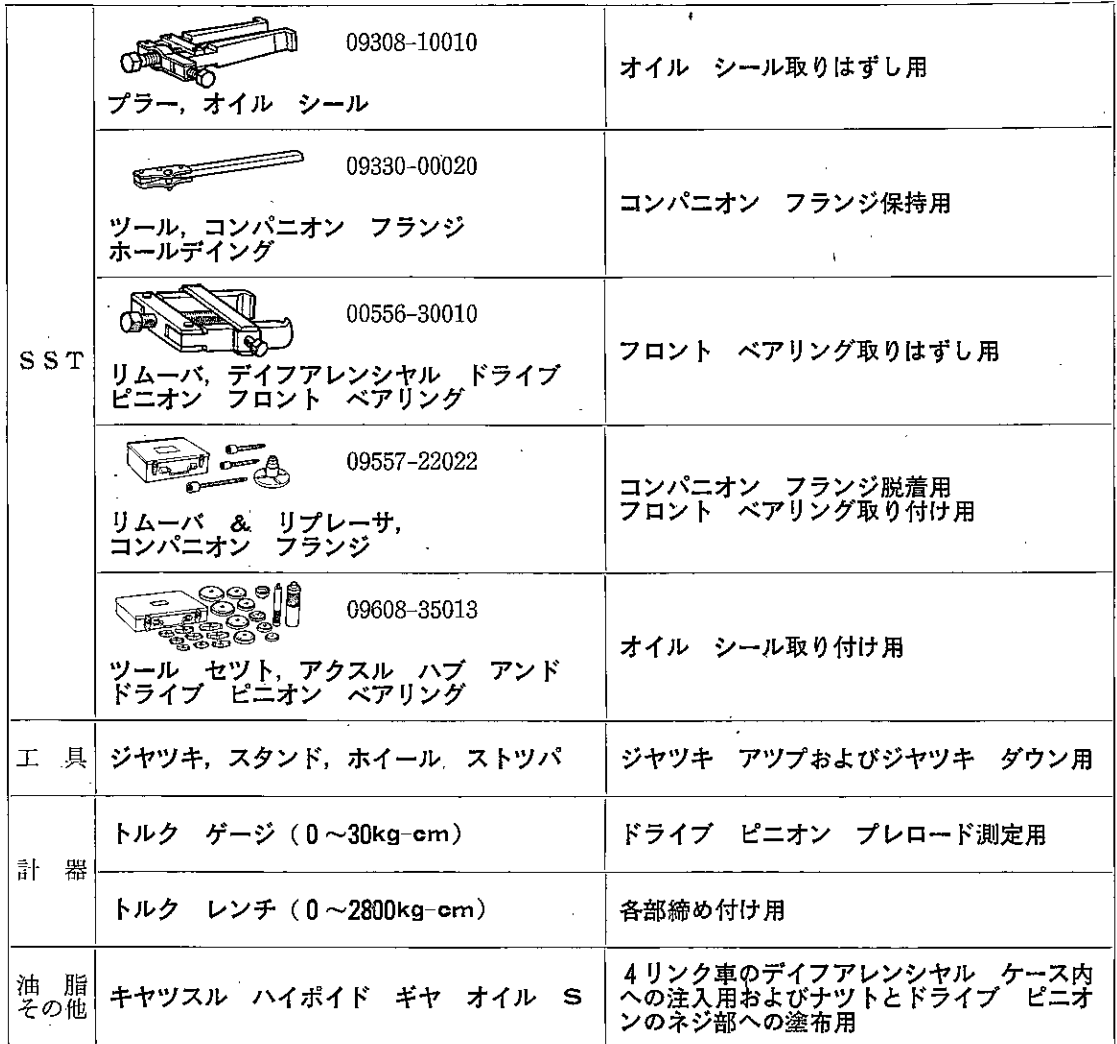 SST
09308-10010
プラー，オイル　シール
オイル　シール取りはずし用
09330-00020
ツール，コンパニオン　フランジ
ホールデイング
コンパニオン　フランジ保持用
00556-30010
リムーバ，デイフアレンシヤル　ドライブ
ピニオン　フロント　ベアリング
フロント　ベアリング取りはずし用
09557-22022
リムーバ　&　リプレーサ，
コンパニオン　フランジ
コンパニオン　フランジ脱着用
フロント　ベアリング取り付け用
09608-35013
ツール　セツト，アクスル　ハブ　アンド
ドライブ　ピニオン　ベアリング
オイル　シール取り付け用
工　具
ジヤツキ，スタンド，ホイール　ストツパ
ジヤツキ　アツプおよびジヤツキ　ダウン用
計　器
トルク　ゲージ（0～30kg-cm）
ドライブ　ピニオン　プレロード測定用
トルク　レンチ（0～2800kg-cm）
各部締め付け用
油　脂
その他
キヤツスル　ハイポイド　ギヤ　オイル　S
4リンク車のデイフアレンシヤル　ケース内
への注入用およびナツトとドライブ　ピニオ
ンのネジ部への塗布用